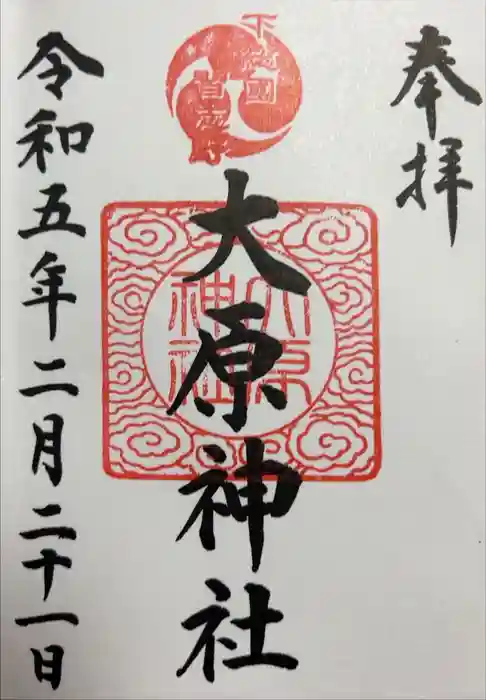 奉拝
下総國
習志野
大原神社
大原
神社
令和五年二月二十一日